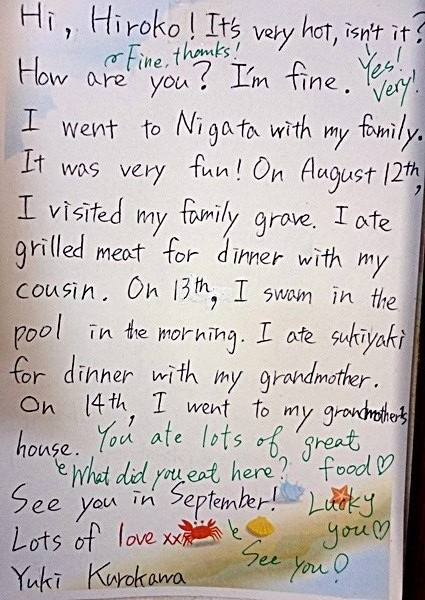 Hi, Hiroko! It's very hot, isn't it?
Fine, thanks!
Yes!
Very!
How are you? I'm fine.
I went to Nigata with my family.
It was very fun! On August 12th,
I visited my family grave. I ate
grilled meat for dinner with my
cousin. On 13th, I swam in the
pool in the morning. I ate sukiyaki
for dinner with my grandmother.
On 14th, I went to my grandmother's
house. You ate lots of great
food♡
What did you eat here?
See you in September!
Lucky
you♡
Lots of love xx
See you!
Yuki Kurokawa